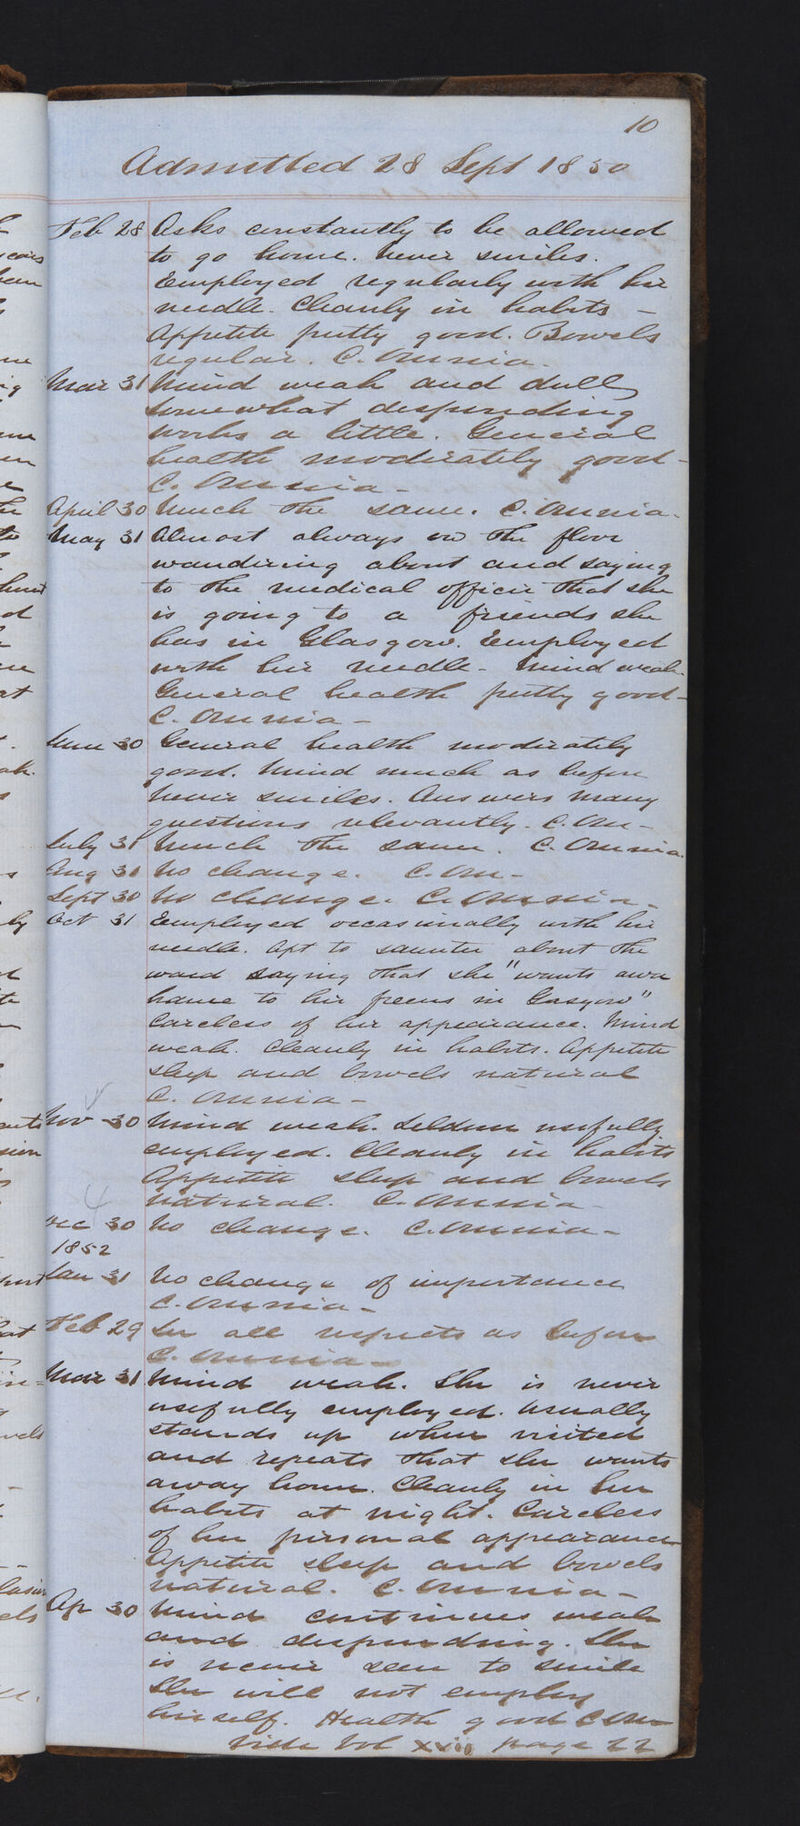 10
Admitted 28 Sept 1850
Feb 28 Asks constantly to be allowed
to go home. Never smiles.
Employed regularly with her
needle. Cleanly in habits -
Appetite pretty good. Bowels
regular. C. Omnia -
Mar 31 Mind weak and dull
somewhat desponding
works a little. General
health moderately good -
C. Omnia -
April 30 Much the same. C. Omnia -
May 31 Almost always on the floor
wandering about and saying
to the medical officer that she
is going to a friends she
has in Glasgow. Employed
with her needle - Mind weak.
General health pretty good -
C. Omnia -
June 30 General health moderately
good. Mind much as before
Never smiles. Answers many
questions relevantly. C. Om -
July 31 Much the same. C. Omnia.
Aug 31 No change. C. Om -
Sept 30 No change. C. Omnia -
Oct 31 Employed occasionally with her
needle. Apt to saunter about the
ward saying that she "wants awa
hame to her freens in Glasgow"
Careless of her appearance. Mind
weak. Cleanly in habits. Appetite
sleep and bowels natural
C. Omnia -
Nov 30 Mind weak. Seldom usefully
employed. Cleanly in habits
Appetite sleep and bowels
natural. C. Omnia -
Dec 30 No change. C. Omnia -
1852
Jan 31 No change of importance
C. Omnia -
Feb 29 In all respects as before
C. Omnia -
Mar 31 Mind weak. She is never
usefully employed. Usually
stands up when visited
and repeats that she wants
away home. Cleanly in her
habits at night. Careless
of her personal appearance
Appetite sleep and bowels
natural. C. Omnia -
Ap 30 Mind continues weak
and desponding. She
is never seen to smile
She will not employ
herself. Health good C Om
Vide Vol xviii page 22